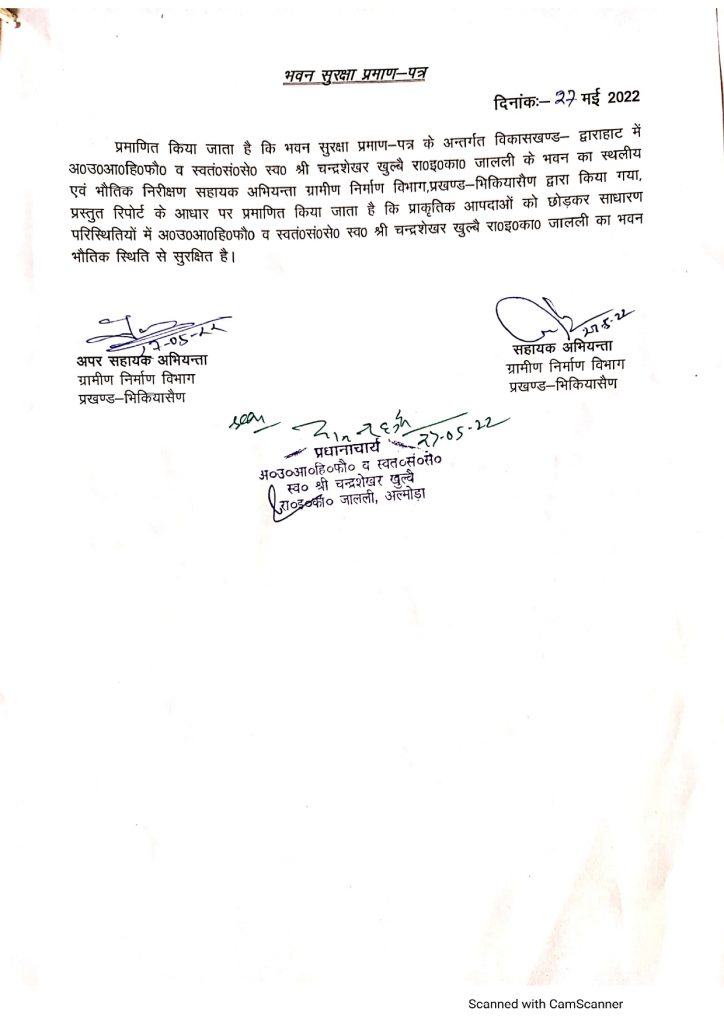 भवन सुरक्षा प्रमाण–पत्र
दिनांकः– 27 मई 2022
प्रमाणित किया जाता है कि भवन सुरक्षा प्रमाण–पत्र के अन्तर्गत विकासखण्ड– द्वाराहाट में
अ0उ0आ0हि0फौ0 व स्वतं0सं0से0 स्व0 श्री चन्द्रशेखर खुल्बै रा0इ0का0 जालली के भवन का स्थलीय
एवं भौतिक निरीक्षण सहायक अभियन्ता ग्रामीण निर्माण विभाग,प्रखण्ड–भिकियासैण द्वारा किया गया,
प्रस्तुत रिपोर्ट के आधार पर प्रमाणित किया जाता है कि प्राकृतिक आपदाओं को छोड़कर साधारण
परिस्थितियों में अ0उ0आ0हि0फौ0 व स्वतं0सं0से0 स्व0 श्री चन्द्रशेखर खुल्बै रा0इ0का0 जालली का भवन
भौतिक स्थिति से सुरक्षित है।
27-05-22
अपर सहायक अभियन्ता
ग्रामीण निर्माण विभाग
प्रखण्ड–भिकियासैण
27-5-22
सहायक अभियन्ता
ग्रामीण निर्माण विभाग
प्रखण्ड–भिकियासैण
27-05-22
प्रधानाचार्य
अ०उ०आ०हि०फौ० व स्वत०सं०से०
स्व० श्री चन्द्रशेखर खुल्बै
रा०इ०का० जालली, अल्मोड़ा
Scanned with CamScanner